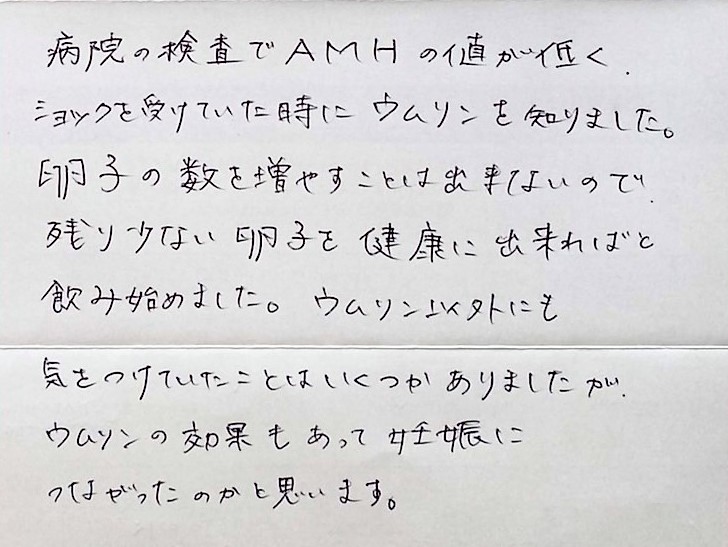 病院の検査でAMHの値が低く
ショックを受けていた時にウムリンを知りました。
卵子の数を増やすことは出来ないので
残り少ない卵子を健康に出来ればと
飲み始めました。ウムリン以外にも
気をつけていたことはいくつかありましたが、
ウムリンの効果もあって妊娠に
つながったのかと思います。